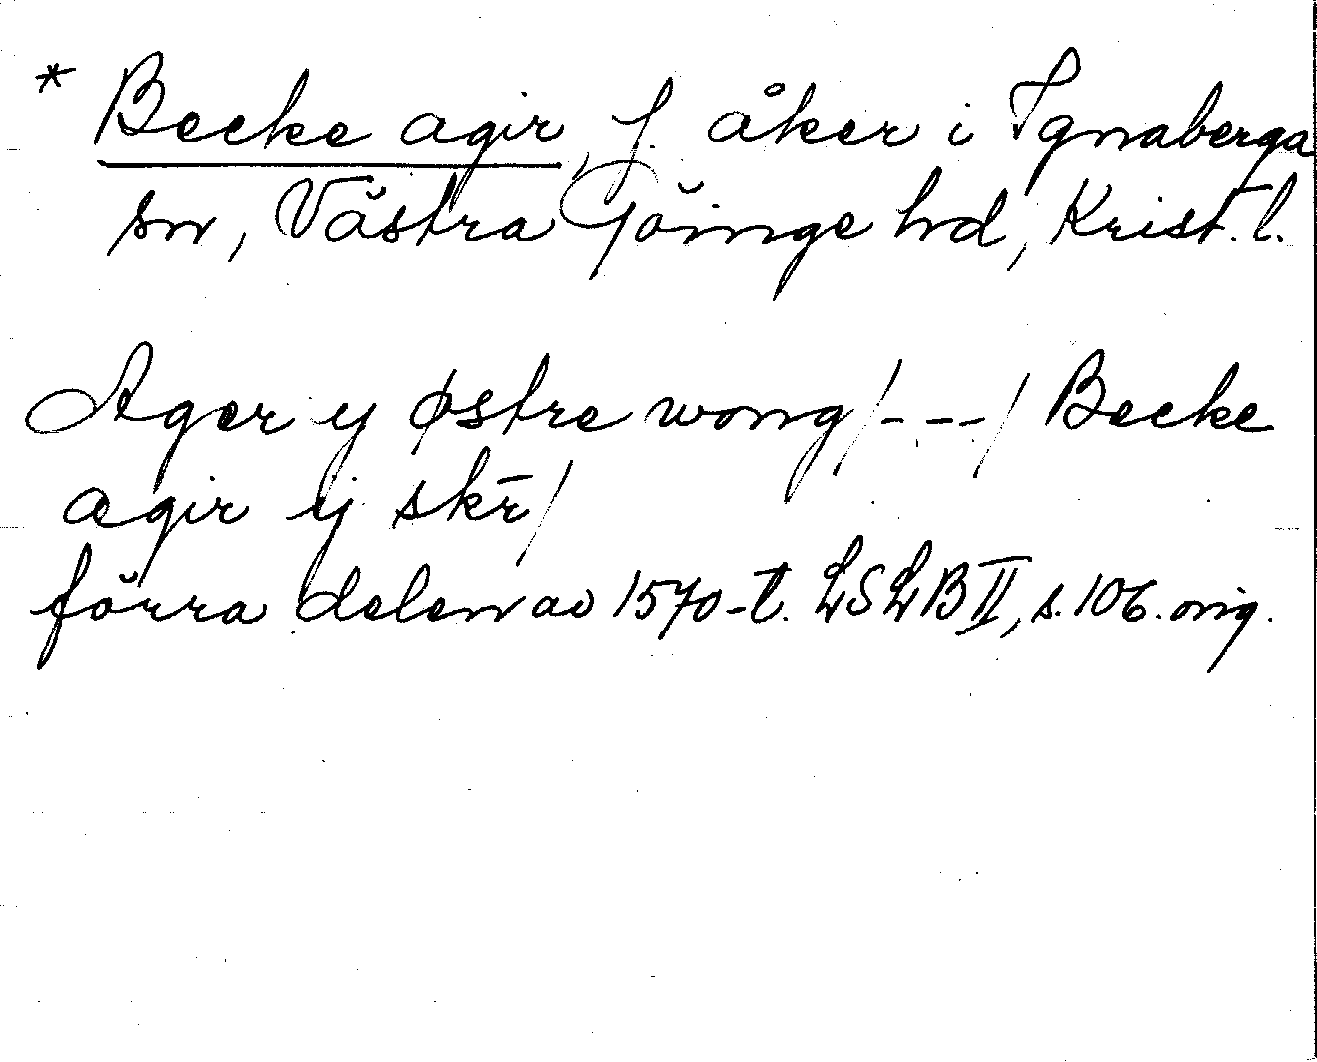 * Becke agir, f. åker i Ignaberga
sn, Västra Göinge hd, Krist. l.
Ager y østre wong /---/ Becke
agir ij skr̄ /
förra delen av 1570-t. LSLB II, s. 106. orig.